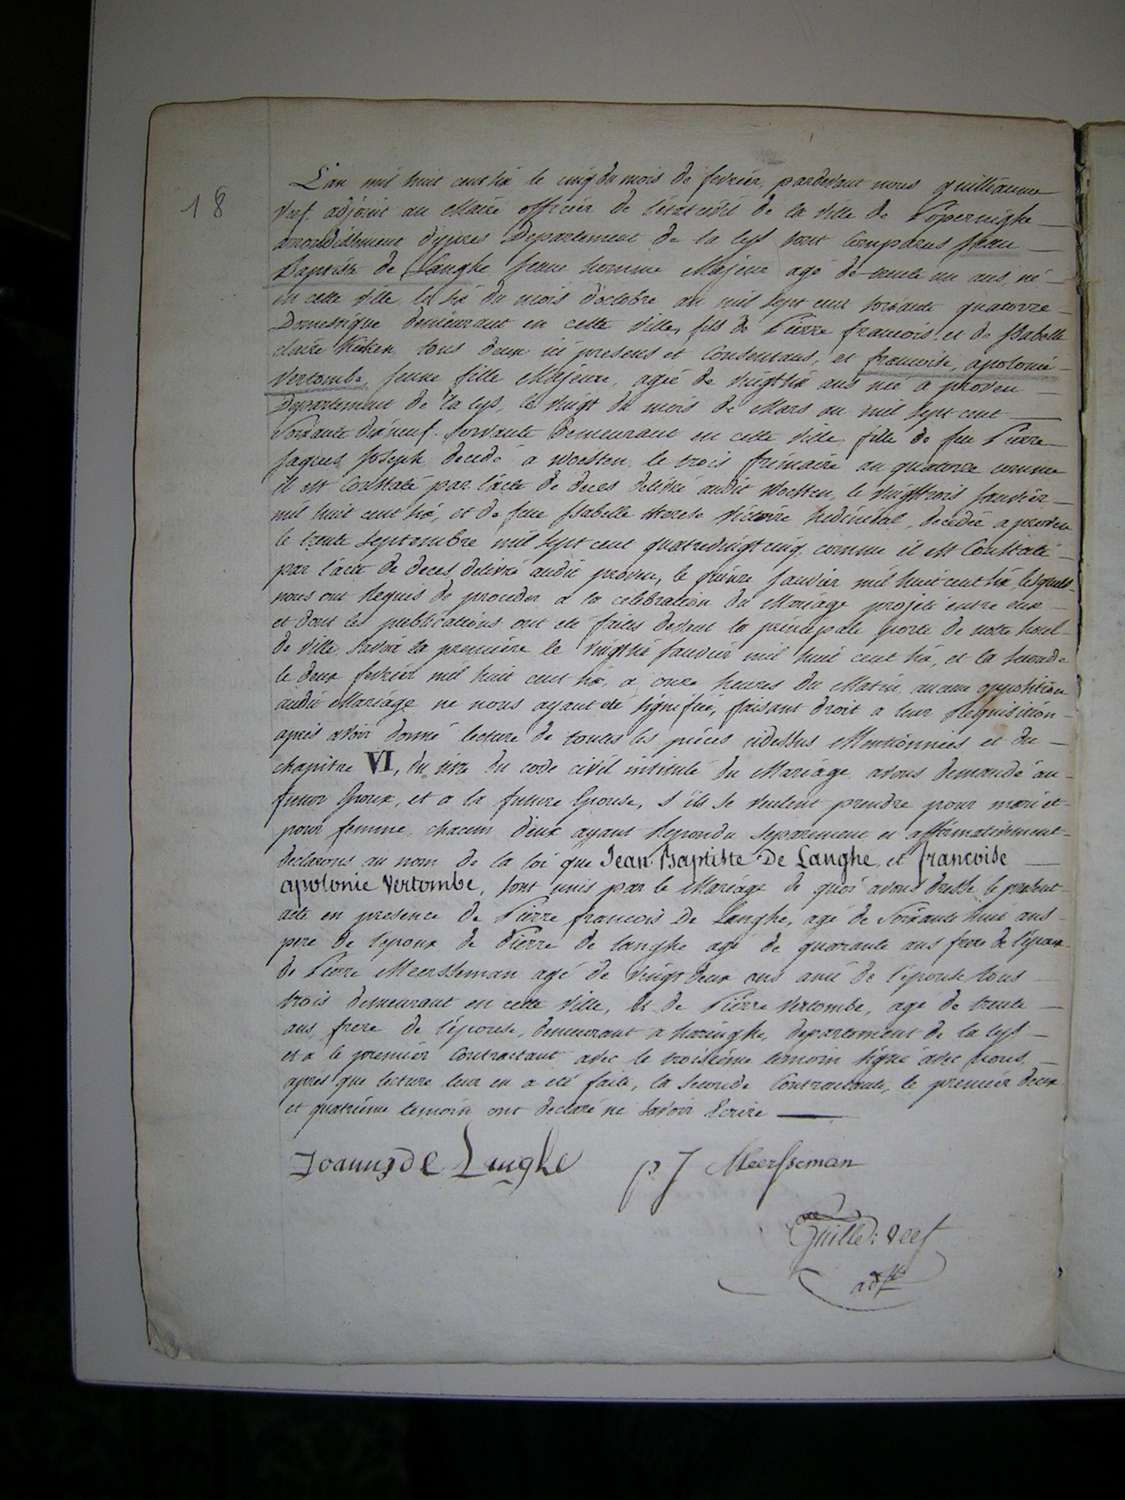 18
L'an mil huit cent six le cinq du mois de fevrier, pardevant nous guilliaume
Verf adjoint au Maire officier de l'état civil de la ville de Poperinghe
arrondissement d'ypres Departement de la Lys sont Comparus Jean
Baptiste de Langhe Jeune homme Majeur agé de trente un ans, né
en cette ville, le six du mois d'octobre an mil sept cent soixante quatorze
Domestique demeurant en cette ville, fils de Pierre francois et de Isabelle
claire tous deux ici presens et Consentans, et francoise, apolonie
Vertombe, Jeune fille Majeure, agée de vingt six ans née à proven
Departement de la Lys, le vingt du mois de Mars an mil sept cent
Soixante dixneuf. Servante demeurant en cette ville fille de feu Pierre
Jaques Joseph decedé à Woesten le trois frimaire an quatorze comme
il est Constaté par l'acte de deces delivré audit Woesten, le vingttrois Janvier
mil huit cent six, et de feue Isabelle therese Victoire decedée a proven
le trente Septembre mil sept cent quatrevingt cinq comme il est Constaté
par l'acte de deces delivré audit proven, le quinze Janvier mil huit cent six lesquels
nous ont Requis de proceder a la celebration du Mariage projeté entre eux
et dont les publications ont été faites devant la principale porte de notre hotel
de ville, Savoir la première le vingtsix Janvier mil huit cent six, et la Seconde
le deux fevrier mil huit cent six, a onze heures du Matin aucune opposition
audit Mariage ne nous ayant été signifiée, faisant droit a leur Requisition
après avoir donné lecture de toutes les pièces cidessus Mentionnées et du
chapitre VI, du titre du code civil intitulé du Mariage avons demandé au
futur Epoux, et a la future Epouse, s'ils se veulent prendre pour mari et
pour femme, chacun d'eux ayant Repondu Separement et affirmativement
declarons au nom de la loi que Jean Baptiste De Langhe et francoise
apolonie Vertombe, sont unis par le Mariage de quoi avons dressé le present
acte en presence de Pierre francois De Langhe, agé de Soixante huit ans
pere de l'epoux de Pierre de langhe agé de quarante ans frere de l'epoux
de Pierre Meersseman agé de vingt deux ans ami de l'epouse tous
trois demeurant en cette ville, et de Pierre Vertombe, agé de trente
ans, frere de l'épouse, demeurant a haringhe, departement de la Lys
et a le premier Contractant avec le troisième temoin signé avec nous
après que lecture leur en a été faite, la Seconde Contractante, le premier deux
et quatrième temoin ont declaré ne savoir Ecrire
Joannes de Langhe
p J Meersseman
Guille: Verf
adjt